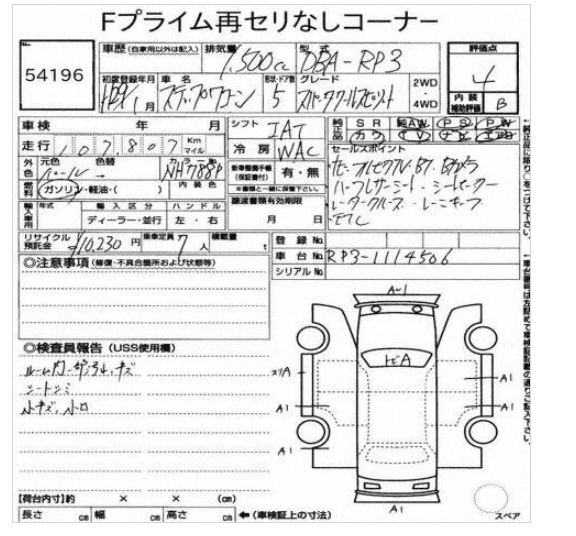 Fプライム再セリなしコーナー
54196
車歴 (自家用以外は記入) 排気量 型式 評価点
1,500cc DBA-RP3 4
初度登録年月 車名 形状・ドア数 グレード 2WD 4WD 内装補助評価 B
H29/1月 ステップワゴン 5 スパーダクールスピリット
車検 年 月 シフト IAT 純正品 SR 純AW PS PW
走行 107,807 Km マイル カワ TV ナビ エアB
冷房 WAC セールスポイント
外色 元色 色替 カラーNo.
パール NH788P
新車整備手帳(保証書付) 有・無
※書類と一緒に保管下さい。
燃料 ガソリン・軽油・( ) 内装色
輸入車用 年式 輸入区分 ハンドル 譲渡書類有効期限
ディーラー・並行 左・右 月 日
ハーフレザーシート シートヒーター
レーダークルーズ レーンキープ
リサイクル預託金 10,230円 乗車定員 7人 積載量 t
登録No.
車台No. RP3-1114506
シリアルNo.
◎注意事項 (修復・不具合箇所および状態等)
◎検査員報告 (USS使用欄)
シートシミ
小キズ、小凹
A-1
トビA
A1
A1
A1
A1
A1
A1
スペア
【荷台内寸】約 × × (cm)
長さ cm 幅 cm 高さ cm ←(車検証上の寸法)